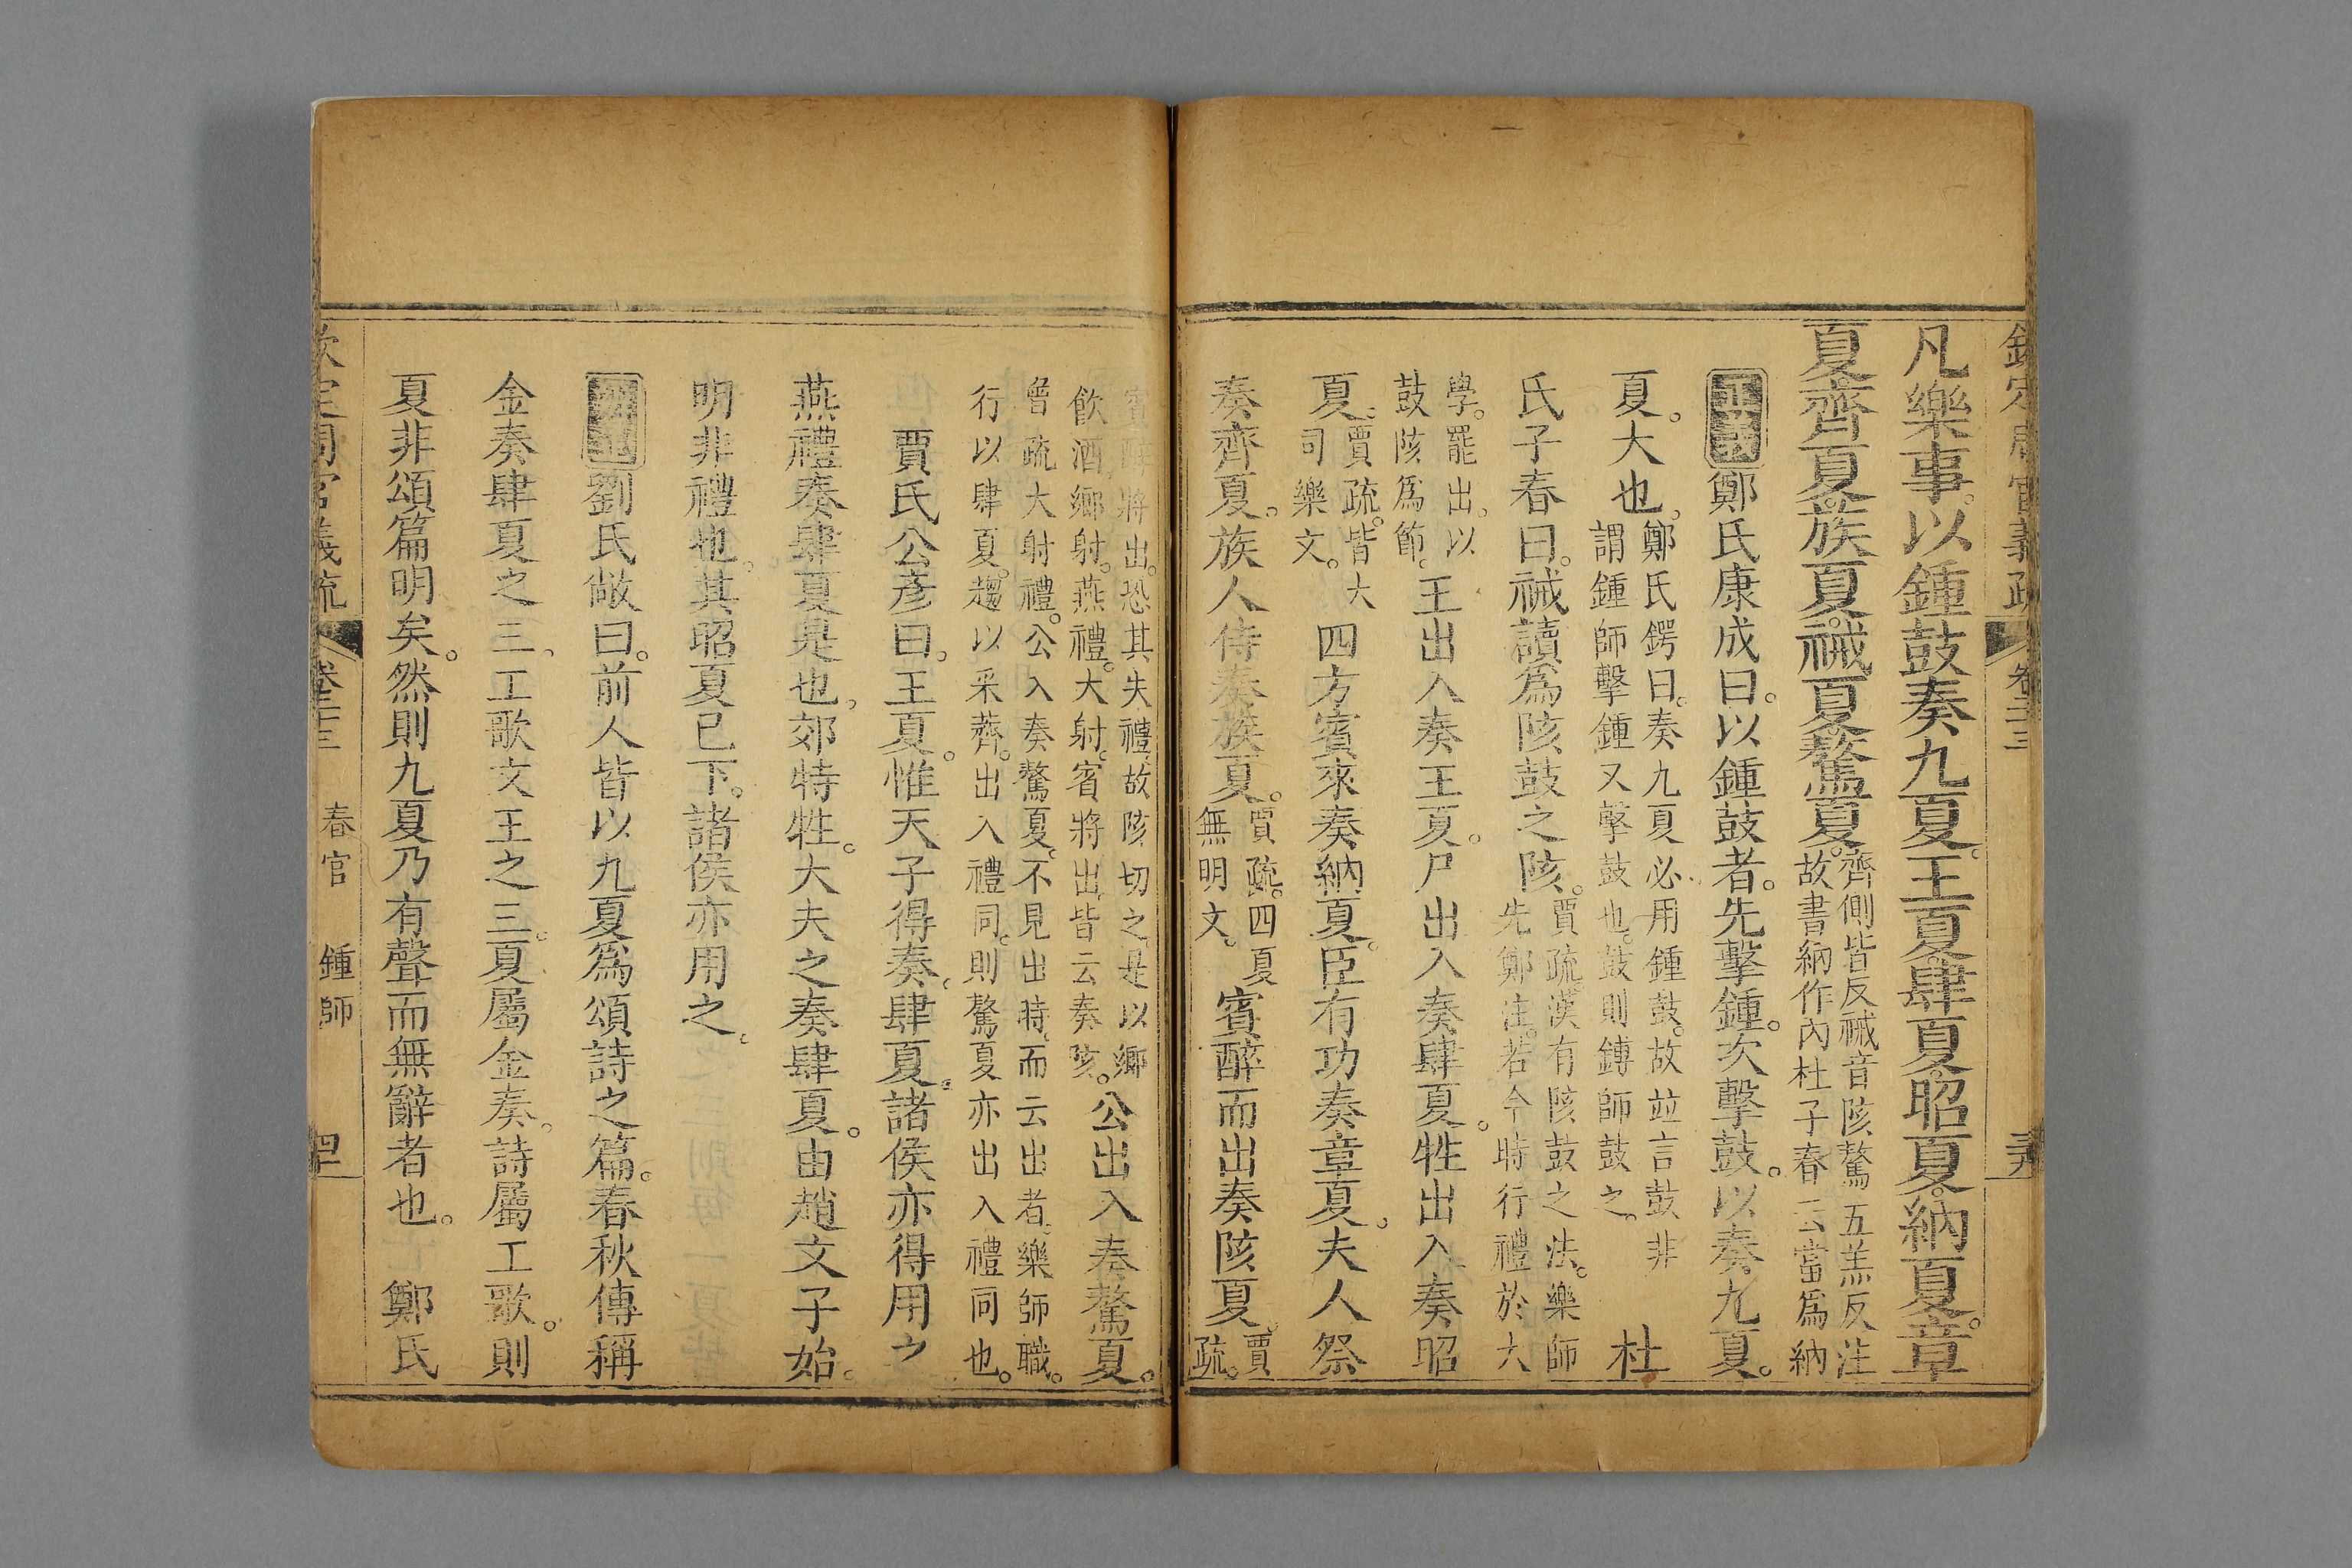 欽定周官義疏 卷二十三
凡樂事。以鍾鼓奏九夏。王夏。肆夏。昭夏。納夏。章
夏。齊夏。族夏。祴夏。驁夏。
齊側皆反祴音陔驁五羔反注
故書納作內杜子春云當爲納
正義鄭氏康成曰。以鍾鼓者。先擊鍾。次擊鼓。以奏九夏。
夏。大也。
鄭氏鍔曰。奏九夏必用鍾鼓。故竝言鼓非
謂鍾師擊鍾又擊鼓也。鼓則鎛師鼓之。
杜
氏子春曰。祴讀爲陔鼓之陔。
賈疏。漢有陔鼓之法。樂師
先鄭注。若今時行禮於大
學。罷出。以
鼓陔爲節。
王出入奏王夏。尸出入奏肆夏。牲出入奏昭
夏。
賈疏。皆大
司樂文。
四方賓來奏納夏。臣有功奏章夏。夫人祭
奏齊夏。族人侍奏族夏。
賈疏。四夏
無明文。
賓醉而出奏陔夏。
賈
疏。
賓醉將出。恐其失禮。故陔切之。是以鄉
飲酒。鄉射。燕禮。大射。賓將出。皆云奏陔。
公出入奏驁夏。
賈疏大射禮。公入奏驁夏。不見出時。而云出者。樂師職。
行以肆夏。趨以采薺。出入禮同。則驁夏亦出入禮同也。
賈氏公彥曰。王夏。惟天子得奏。肆夏。諸侯亦得用之
燕禮奏肆夏是也。郊特牲。大夫之奏肆夏。由趙文子始。
明非禮也。其昭夏已下。諸侯亦用之。
劉氏敞曰。前人皆以九夏爲頌詩之篇。春秋傳稱
金奏肆夏之三、工歌文王之三。夏屬金奏。詩屬工歌。則
夏非頌篇明矣。然則九夏乃有聲而無辭者也。 鄭氏
欽定周官義疏 卷二十三 春官 鍾師